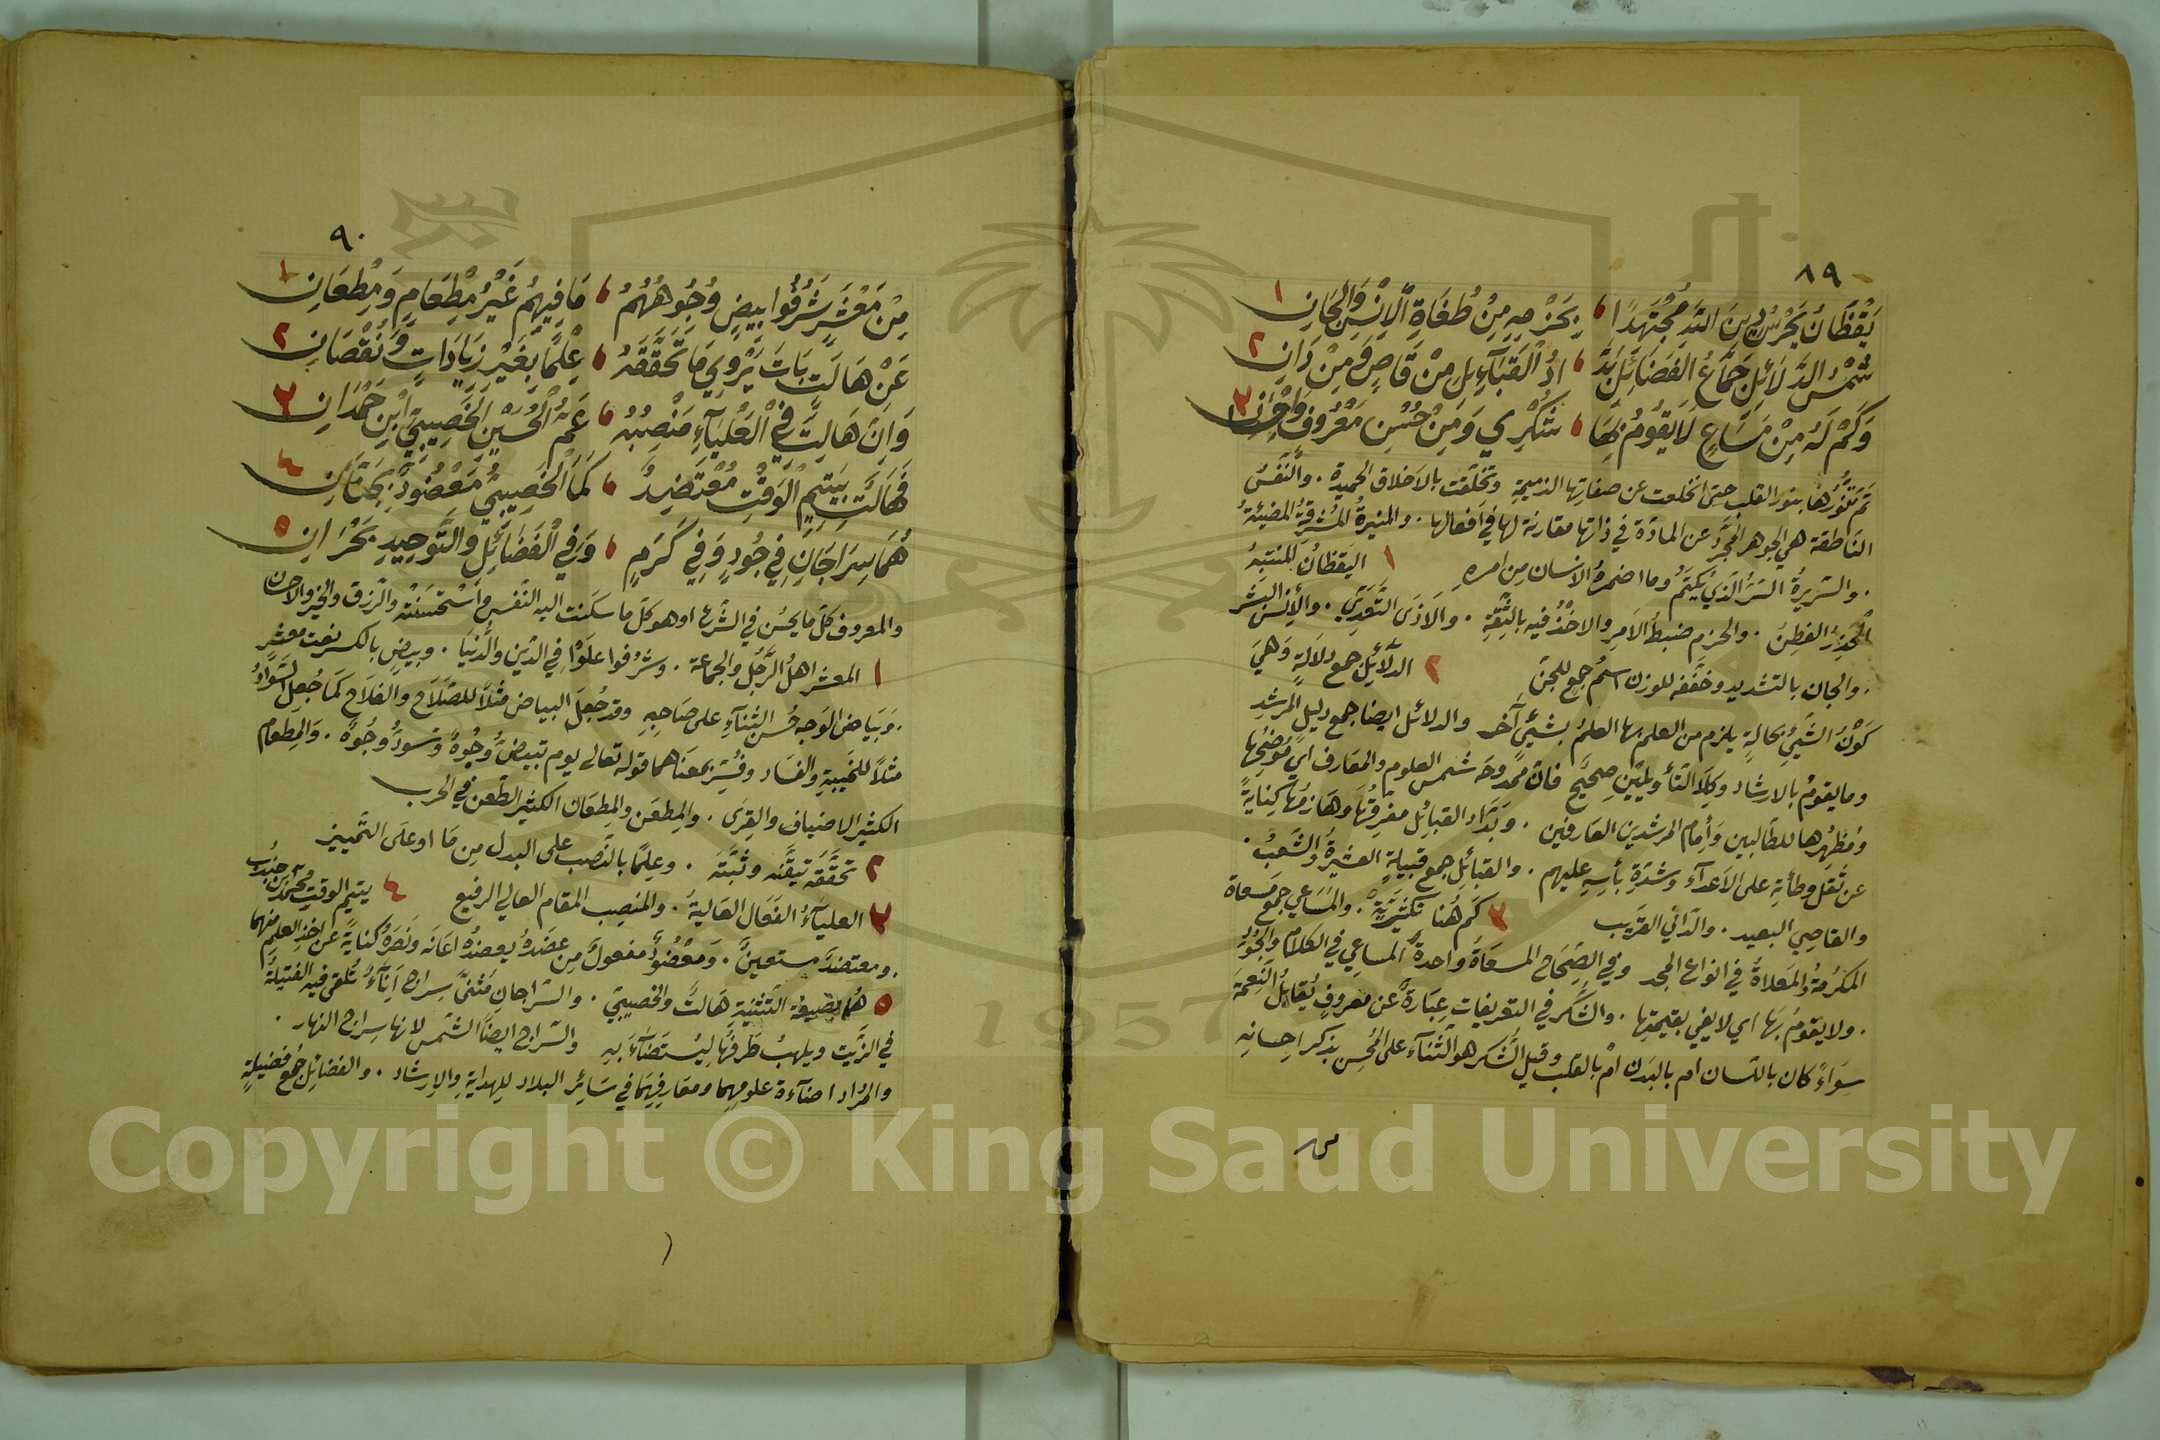 ٨٩
يَقْظَانُ يَحْرُسُ دِينَ اللهِ مُجْتَهِدًا ، بِحَزْمِهِ مِنْ طُغَاةِ الْاِنْسِ وَالْجَانِ ١
شَمْسُ الدَّلَائِلِ جَمَّاعُ الفَضَائِلِ بَدَّ ، ادُ الْقَبَآئِلِ مِنْ قَاصٍ وَمِنْ دَانِ ٢
وَكَمْ لَهُ مِنْ مَسَاعٍ لَا يَقُومُ بِهَا ، شُكْرِي وَمَنْ حُسْنِ مَعْرُوفٍ ٣
ثم تَنَوُّرُهَا بنور القلب حتى انخلعت عن صفاتها الذميمة وتخلقت بالاخلاق الحميدة . والنَّفْسُ
الناطقة هي الجوهر المجرَّد عن المادّة في ذاتها مقارنة لها في افعالها . والمنيرةُ المُشرقةُ المضيئةُ
. والسّريرةُ السّرُّ الَّذي يُكْتَمُ وما اضمرهُ الانسان من امره ١ اليقظانُ المنتبِهُ
الْحَذِرُ الفَطِنُ . والحزم ضبطُ الاَمرِ والاخذُ فيه بالثّقةِ . والاَذَى التَّعَدّي . والإنس البشر
. والجان بالتشديد وخفّفه للوزن اسمُ جمعٍ للجنّ ٢ الدلآئل جمع دلالةٍ وَهيَ
كَوْنُ الشيءِ بحالةٍ يلزم من العلم بها العلمُ بشيءٍ آخر والدلائل ايضا جمع دليل المرشدِ
وما يقومُ بالارشاد وكِلَا التأويلَيْنِ صحيح فانّ ممدوحَه شمس العلوم والمعارف اي مُوَضِحُها
ومُظهِرُها للطالبين وَأمام المرشدين العارفين . وبَدّاد القبائل مفرِقُها وهازمُها كنايةً
عن ثقل وطأتِه على الاعدآء وشدّةِ بأسِهِ عليهم . والقبائل جمع قبيلةٍ العشيرةُ والشَّعبُ .
والقاصي البعيد . والدّاني القريب ٣ كَم هُنا تَكثيريّة . والمَسَاعي جمع مَسعاة
المكرُمة والمَعلاةُ في انواع المجد وفي الصِّحَاح المسعَاةُ واحدةُ المساعي في الكلام والجُودِ
. ولا يقومُ بَها اي لا يفي بقيمتِها . والشكر في التعريفات عبَارةٌ عن معروفٍ يُقَابلُ النِعمَةَ
سِوَاءً كان باللّسان ام بالبَدَن امْ بالقلب وقيل الشّكر هو الثَّنَآء على المُحسِن بذكر احِسانِهِ
٩٠
مِنْ مَعْشَرٍ شَرُفُوا بِيضٍ وُجُوهُهُمُ ، مَا فِيهِمُ غَيْرُ مِطْعَامٍ وَمِطْعَانِ ١
عَنْ هَالَتٍ بَاتَ يَرْوِي مَا تَحَقَّقَهُ ، عِلْمًا بِغَيْرِ زِيَادَاتٍ وَنُقْصَانِ ٢
وَاِنَّ هَالَتَ فِي الْعَلْيَآءِ مَنْصِبُهُ ، عَمُّ الْحُسَيْنِ الْخَصِيبِيِّ ابْنِ حَمْدَانِ ٣
فَهَالَتٌ بِيَتِيمِ الْوَقْتِ مُعْتَضِدٌ ، كَمَا الْخَصِيبِيُّ مَعْضُودٌ ٤
هُمَا سِرَاجَانِ فِي جُودٍ وَفِي كَرَمٍ ، وَفِي الْفَضَائِلِ وَالتَّوحِيدِ بَحْرَانِ ٥
والمعروف كلّ ما يحسُن في الشّرع او هو كل ما سكنت اليه النّفس واستحسَنَتْه والرّزق والخير والاحسان
١ المعشر اهلُ الرَّجُل والجماعة . وشَرُفوا علَوْا في الدّين والدُّنيَا . وبيضٍ بالكسر نعت معشرٍ
. وَبَيَاض الوَجه حُسن الثنآءِ على صَاحِبه وقد جُعلَ البياض مثلاً للصَّلَاح والفلَاح كمَا جُعِلَ السَّوادُ
مثلاً للخيبةِ والفسَاد وفُسِّر بمعنَاهما قوله تعالى يوم تبيضُّ وُجُوهٌ وتَسودُّ وُجُوهٌ . والمِطعام
الكثير الاضياف والقِرى . والمِطعَن والمِطعَان الكثير الطَّعن في الحرب
٢ تحقَّقَهُ تيقَّنه وثَبَّتَهُ . وعِلمًا بالنَّصب على البدل مِن مَا او على التَّمييز
٣ العليآءُ الفَعَال العَاليةُ . والمنصب المقام العالي الرفيع ٤ يتيم الوقت محمّد بن جُندب
. ومعتضدٌ مستعينٌ . ومَعضُودٌ مفعولٌ من عضدهُ يعضدهُ اعَانه ونَصَرهُ كنايةً عن اخذ العلم منهما
٥ هُما بصيغة التّثنية هَالتٌ والخصيبيّ . والسِّراجانِ مُثنّى سِراجٍ اِنآءٌ تُلقى فيه الفتيلةُ
في الزّيت ويلهبُ طَرفُها ليُستضَآءَ بِه والسّراج ايضًا الشمس لانها سِراج النهار .
والمُرَاد اضآءة علومِهِما ومعَارفِهِمَا في سَائر البلاد للهداية والارشاد . والفضائل جمع فضيلةٍ
Copyright © King Saud University
1957